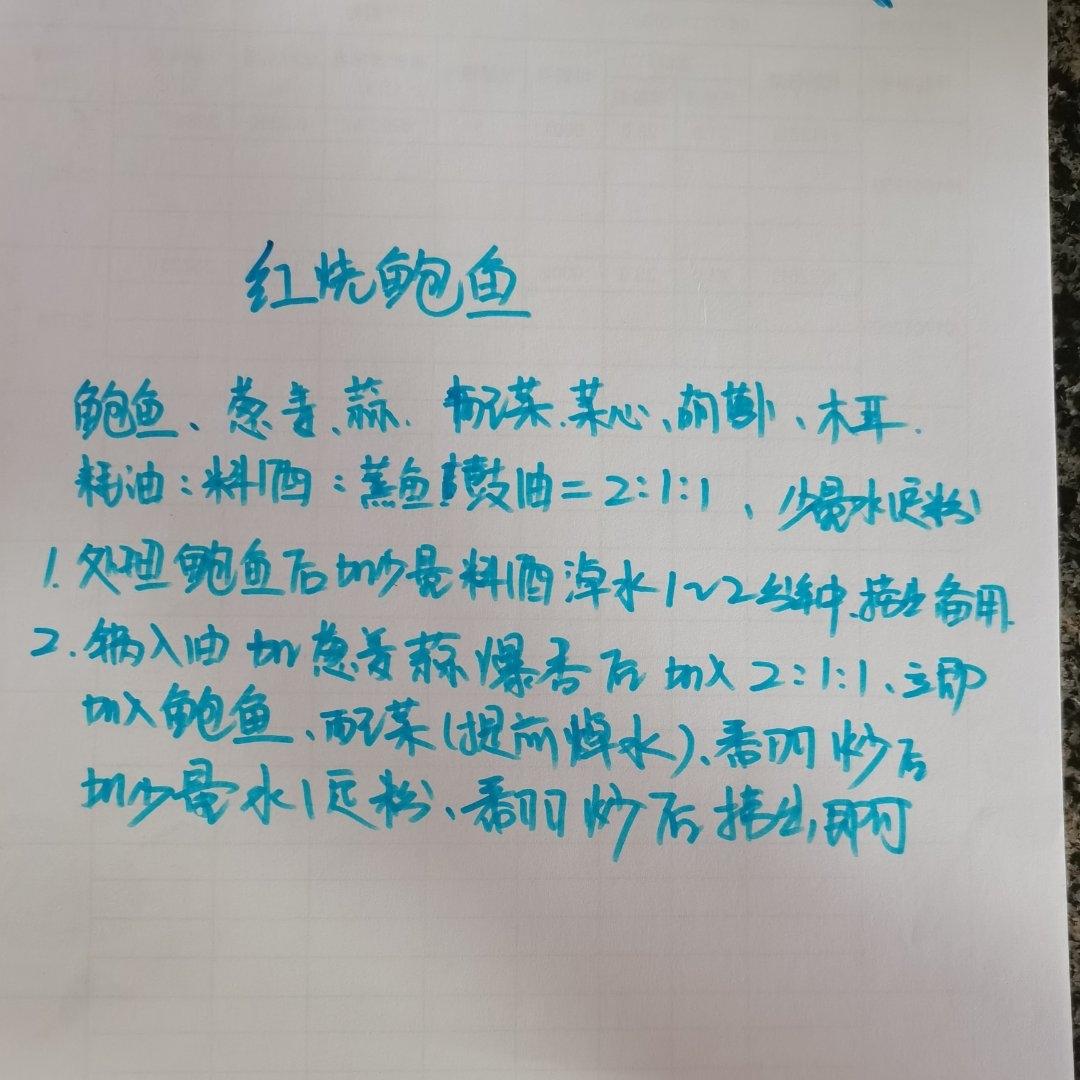 红烧鲍鱼
鲍鱼、葱姜、蒜. 配菜.菜心、胡萝卜、木耳.
耗油:料酒:蒸鱼豉油=2:1:1、少量水淀粉
1.处理鲍鱼后加少量料酒淖水1~2分钟.捞出备用
2.锅入油加葱姜蒜爆香后加入2:1:1、立即
加入鲍鱼、配菜(提前焯水)、翻炒后
加少量水淀粉、翻炒后捞出即可